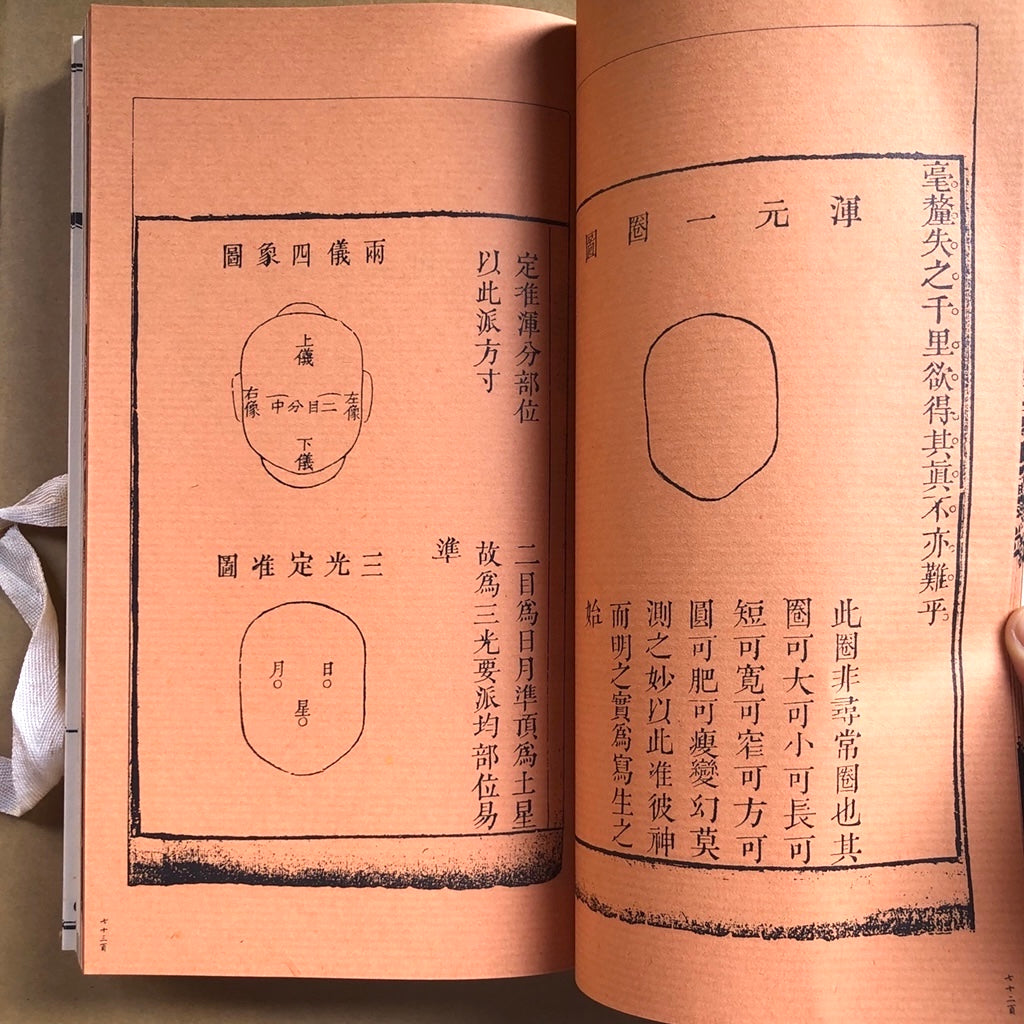 毫釐失之千里欲得其眞不亦難乎
渾元一圈圖
此圈非尋常圈也其
圈可大可小可長可
短可寬可窄可方可
圓可肥可瘦變幻莫
測之妙以此准彼神
而明之實爲寫生之
始
七十二頁
定准渾分部位
以此派方寸
兩儀四象圖
上儀
左像
二目分中
右像
下儀
二目爲日月準頂爲土星
故爲三光要派均部位易
準
三光定准圖
日
月
星
七十三頁